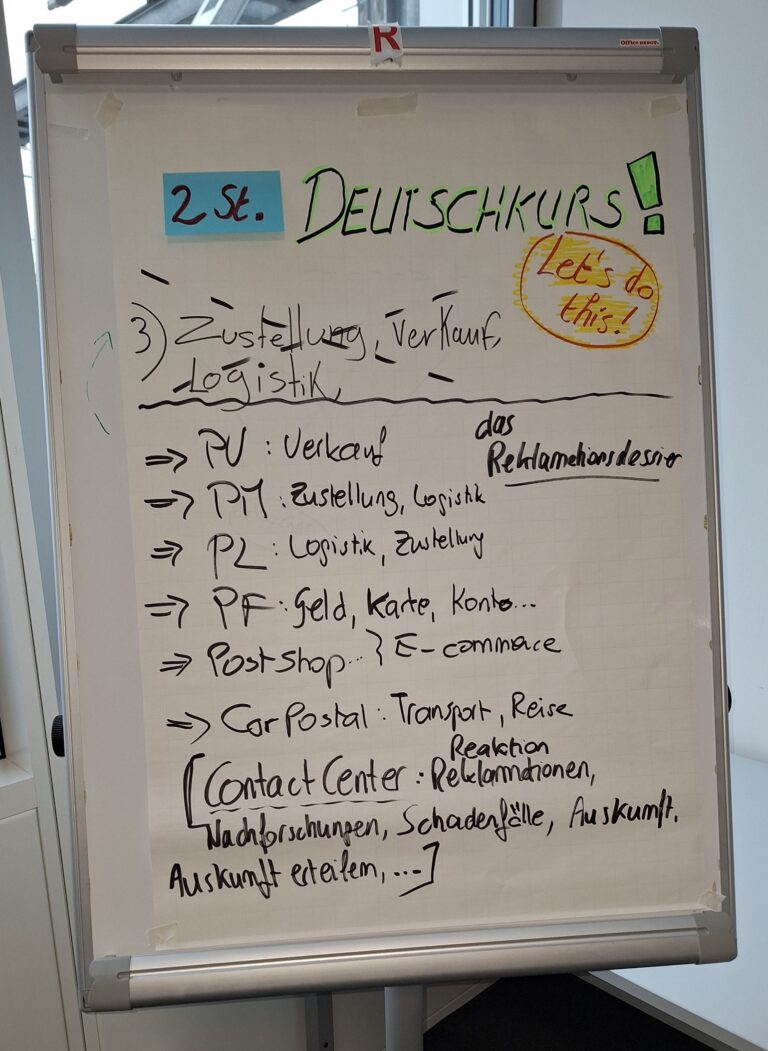 R
Office DEPOT.
2 St. DEUTSCHKURS!
Let's do
this!
3) Zustellung, Verkauf,
Logistik,
das
Reklamationsdossier
=> PV : Verkauf
=> PM : Zustellung, Logistik
=> PL : Logistik, Zustellung
=> PF : Geld, Karte, Konto...
=> PostShop... } E-commace
=> CarPostal : Transport, Reise
Reaktion
[Contact Center : Reklamationen,
Nachforschungen, Schadenfälle, Auskunft.
Auskunft erteilem, ...]